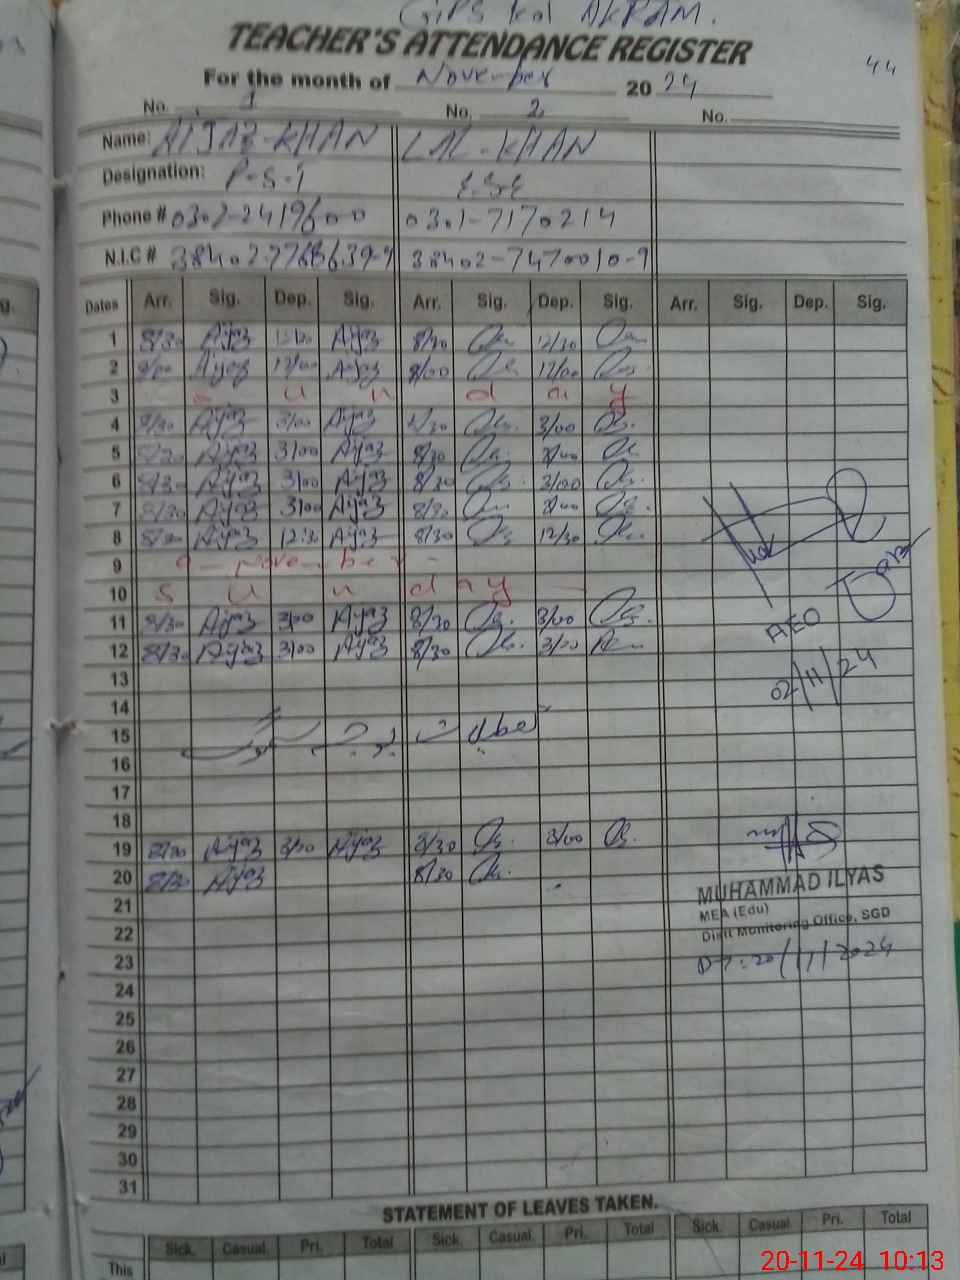 GPS kot AKRAM.
TEACHER'S ATTENDANCE REGISTER
44
For the month of November 2024
No. 1 No. 2 No.
Name: AIJAZ-KHAN LAL-KHAN
Designation: P-S-T E.S.E
Phone # 0302-2419600 0301-7170214
N.I.C # 38402-7470010-9
Dates Arr. Sig. Dep. Sig. Arr. Sig. Dep. Sig. Arr. Sig. Dep. Sig.
1 8/30 Ayaz Ayaz 8/30 12/30
2 8/00 Ayaz 12/00 Ayaz 8/00 12/00
3 S u n d a y
4 8/30 Ayaz 3/00 Ayaz 8/30 3/00
5 8/30 Ayaz 3/00 Ayaz 8/30 3/00
6 8/30 Ayaz 3/00 Ayaz 8/30 3/00
7 8/30 Ayaz 3/00 Ayaz 8/30 3/00
8 8/30 Ayaz 12:30 Ayaz 8/30 12/30
9 9 - November -
10 S u n d a y
AEO
11 8/30 Ayaz 3/00 Ayaz 8/30 3/00
12 8/30 Ayaz 3/00 Ayaz 8/30 3/00
02/11/24
13
14
15
16
17
18
19 8/30 Ayaz 3/00 Ayaz 8/30 3/00
20 8/30 Ayaz 8/30
MUHAMMAD ILYAS
21
MEA (Edu)
22
Distt Monitoring Office, SGD
23
DT: 20/11/2024
24
25
26
27
28
29
30
31
STATEMENT OF LEAVES TAKEN.
Sick. Casual. Pri. Total Sick. Casual. Pri. Total Sick. Casual. Pri. Total
This
20-11-24 10:13